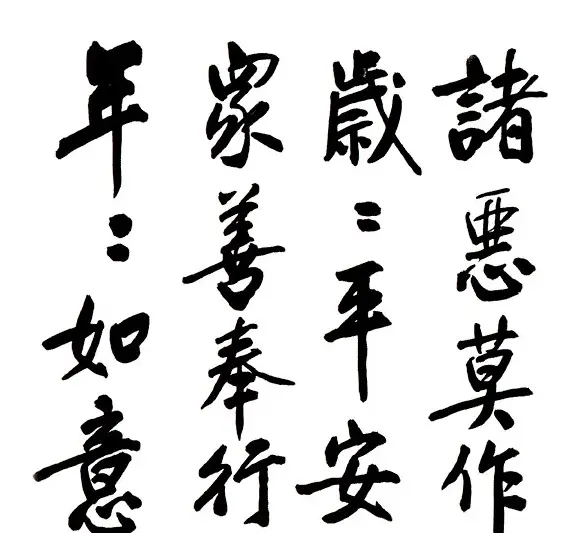 諸惡莫作
歲：平安
眾善奉行
年：如意